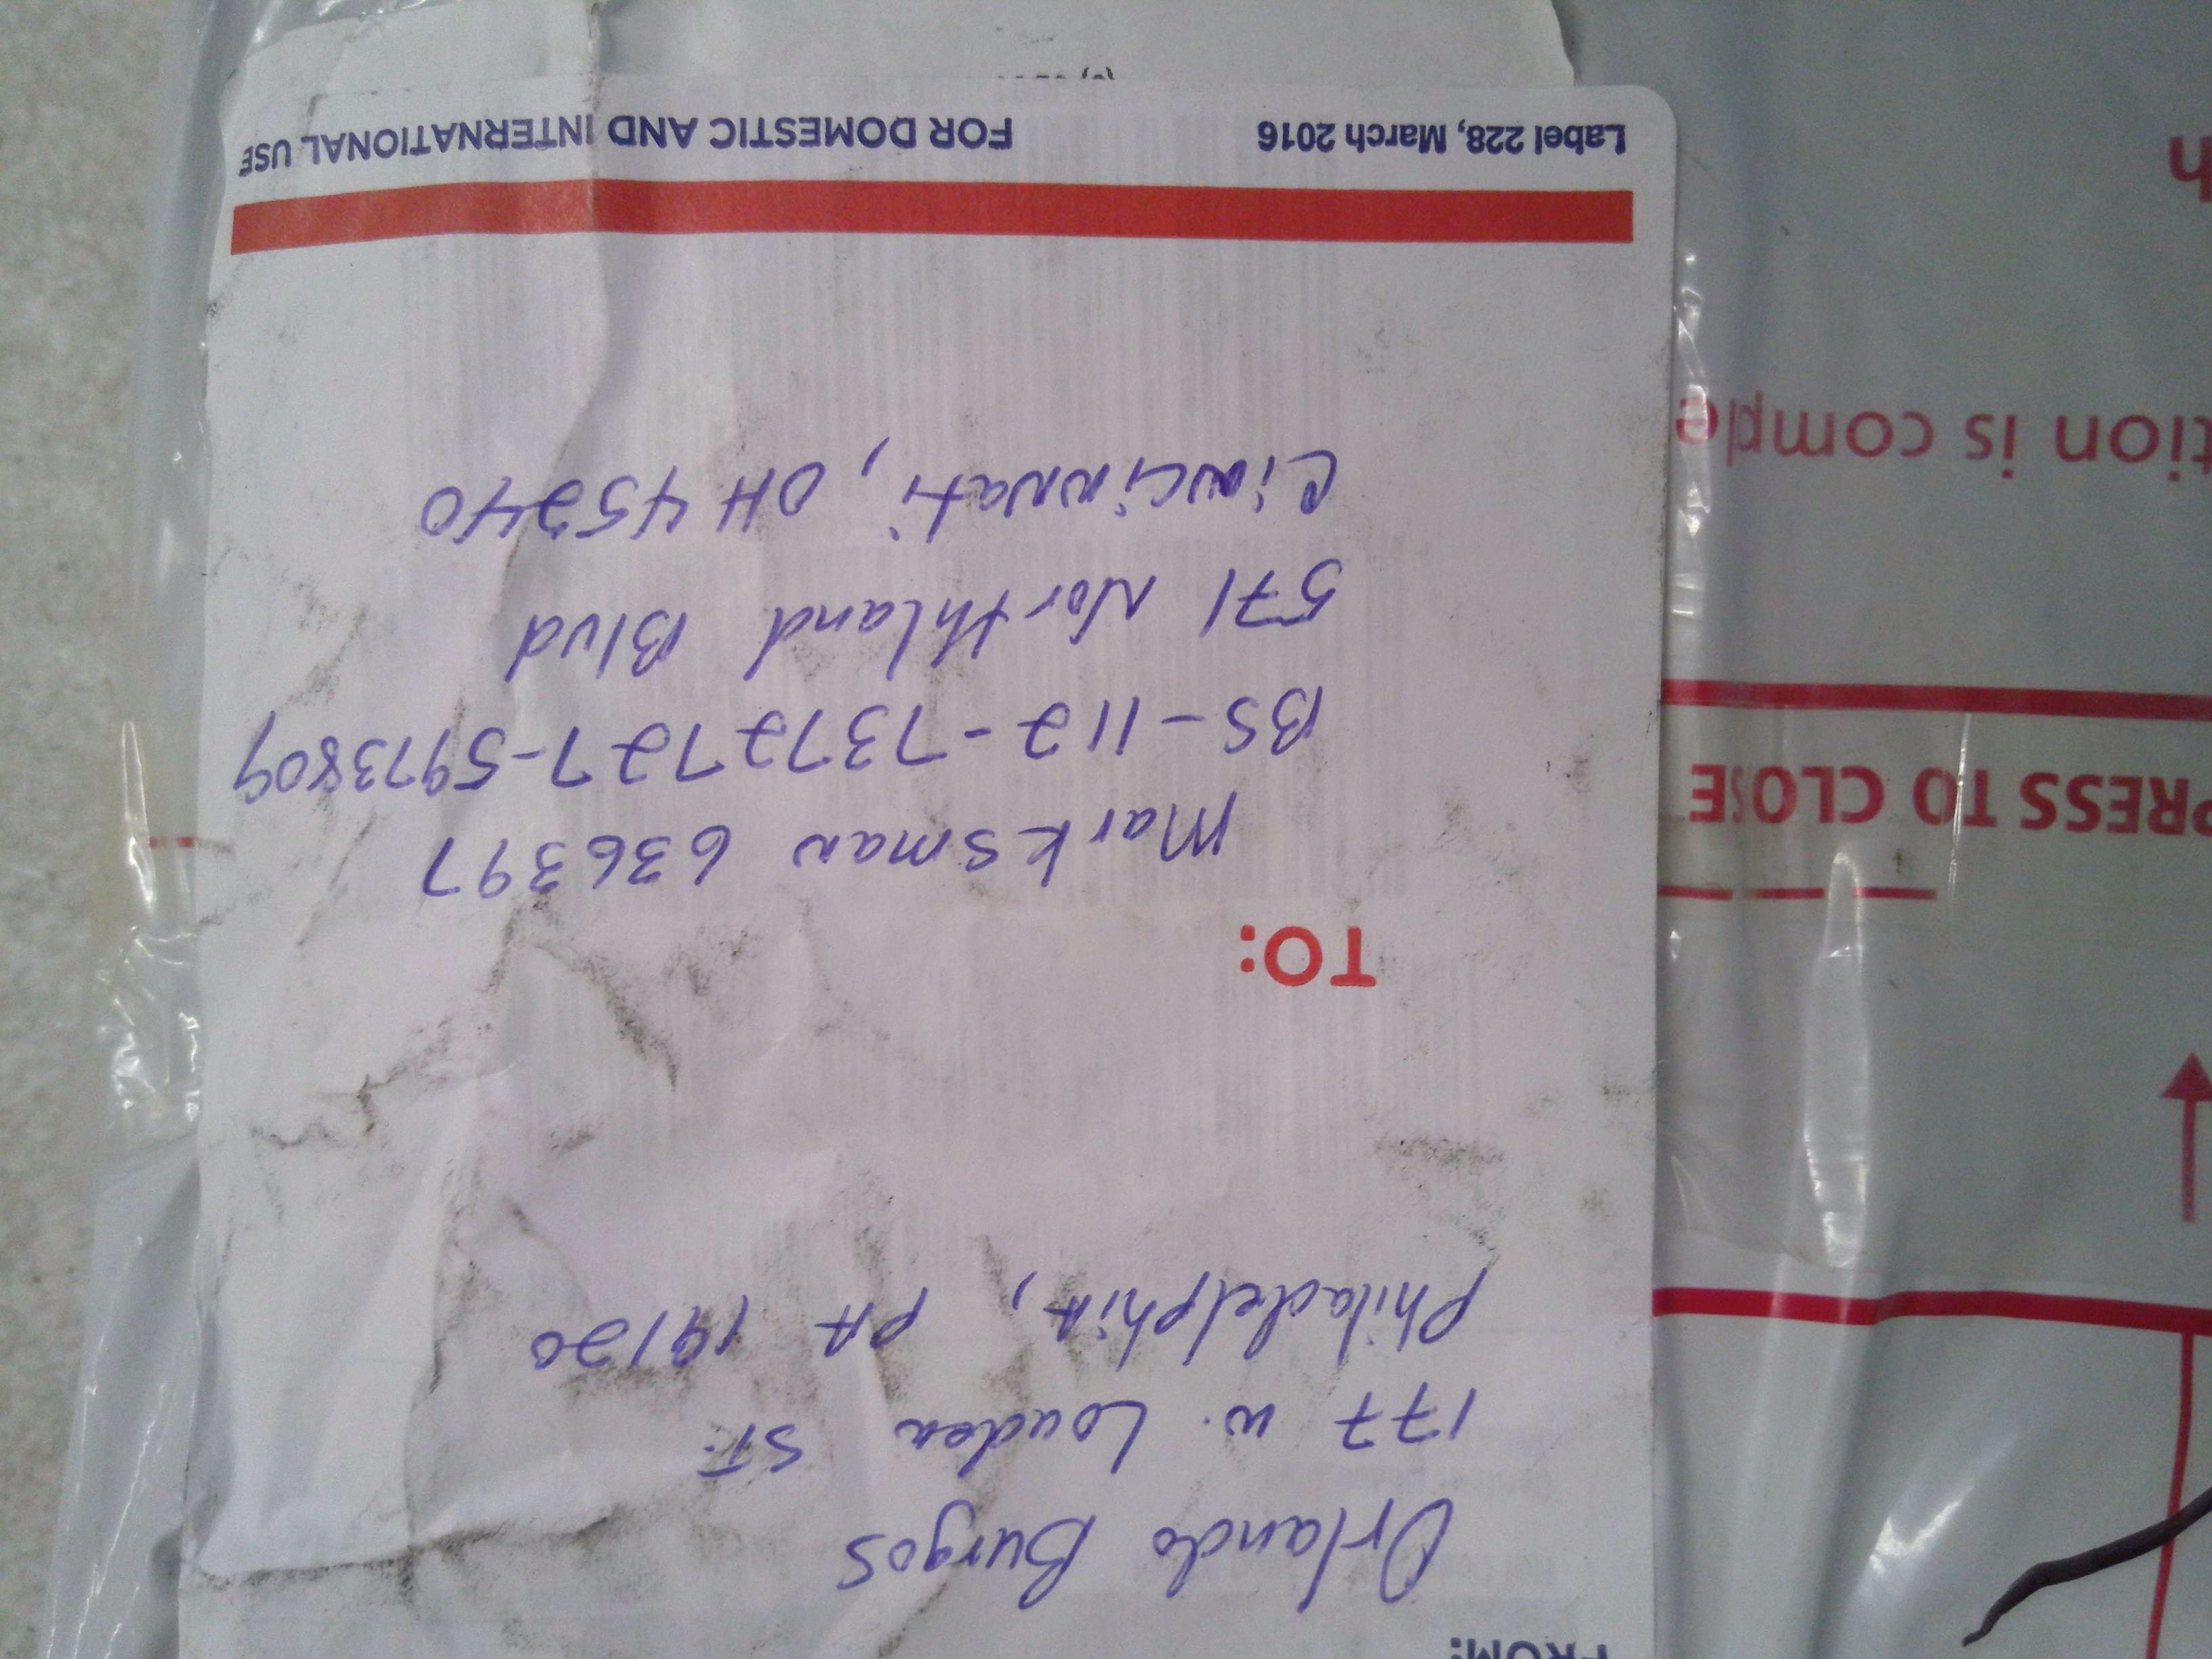 FROM:
Orlando Burgos
177 W. Louden ST.
Philadelphia, PA 19120
TO:
Marksman 636397
BS-112-7372727-5973809
571 Northland Blvd
Cincinnati, OH 45240
Label 228, March 2016 FOR DOMESTIC AND INTERNATIONAL USE
PRESS TO CLOSE
tion is comple
h